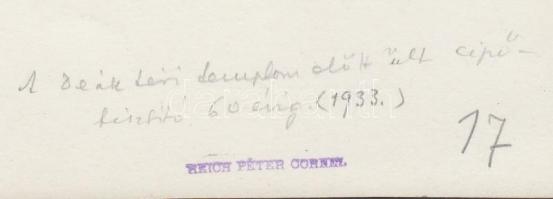 A Deák téri templom előtt ült cipő-
tisztító 60 évig (1933.)
17
REICH PÉTER CORNEL